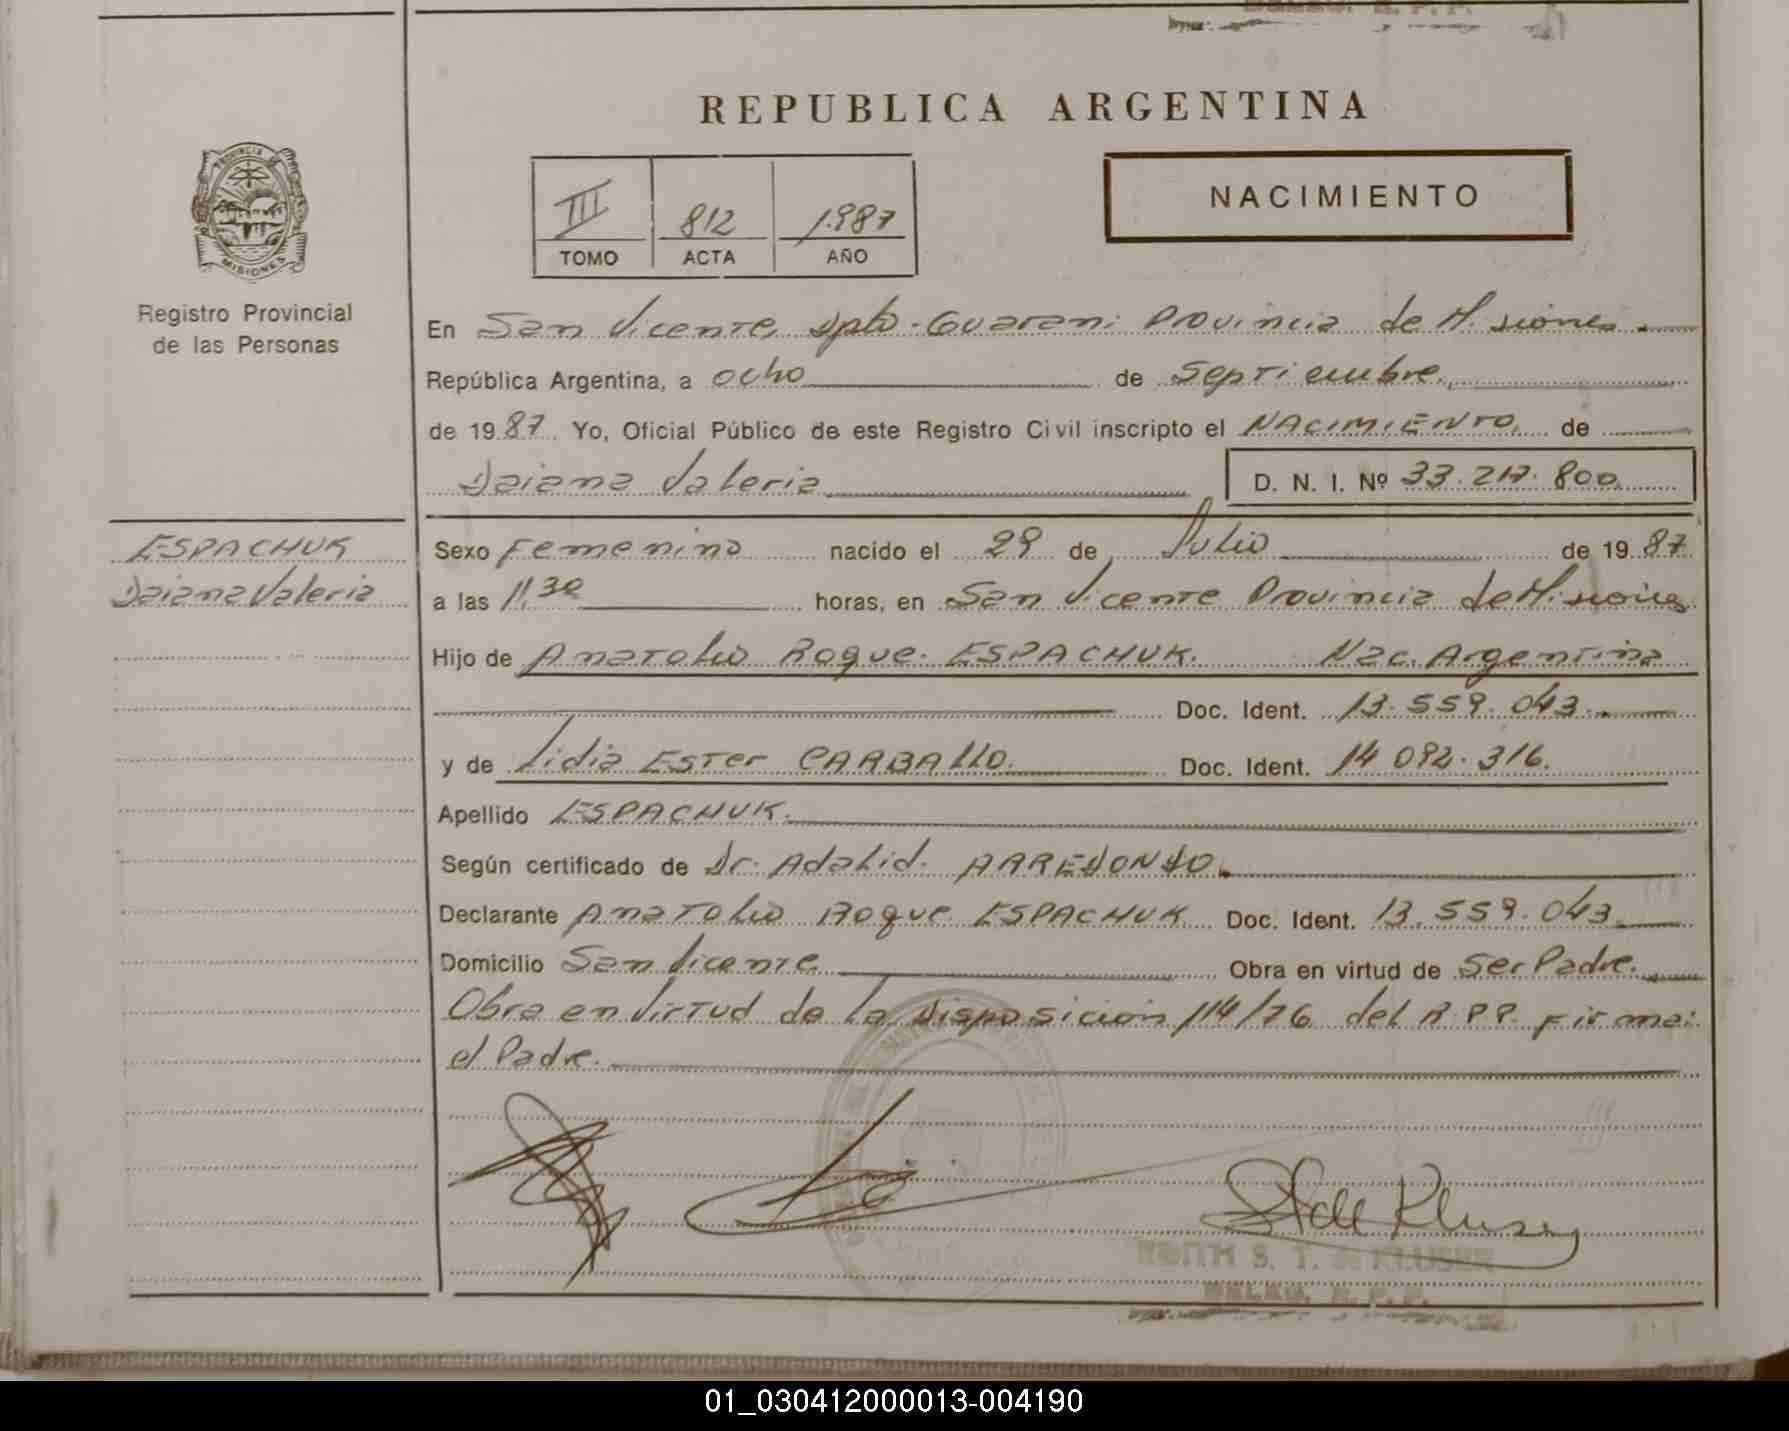 REPUBLICA ARGENTINA
PROVINCIA DE
MISIONES
Registro Provincial
de las Personas
III 812 1.987
TOMO ACTA AÑO
NACIMIENTO
En San Vicente, Dpto. Guarani Provincia de Misiones.
República Argentina, a ocho de Septiembre,
de 1987. Yo, Oficial Público de este Registro Civil inscripto el NACIMIENTO, de
Daiana Valeria D. N. I. Nº 33.217.800
ESPACHUK
Daiana Valeria
Sexo Femenino nacido el 29 de Julio de 1987
a las 11,30 horas, en San Vicente Provincia de Misiones
Hijo de Anatolio Roque ESPACHUK. Nac. Argentina
Doc. Ident. 13.559.043.
y de Lidia Ester CARBALLO. Doc. Ident. 14.092.316.
Apellido ESPACHUK.
Según certificado de Dr. Adalid. ARREDONDO.
Declarante Anatolio Roque ESPACHUK Doc. Ident. 13.559.043
Domicilio San Vicente Obra en virtud de Ser Padre.
Obra en Virtud de la Disposición 114/76 del R.P.P. Firma:
el Padre.
S. T. KLUSER
R. P. P.
01_030412000013-004190